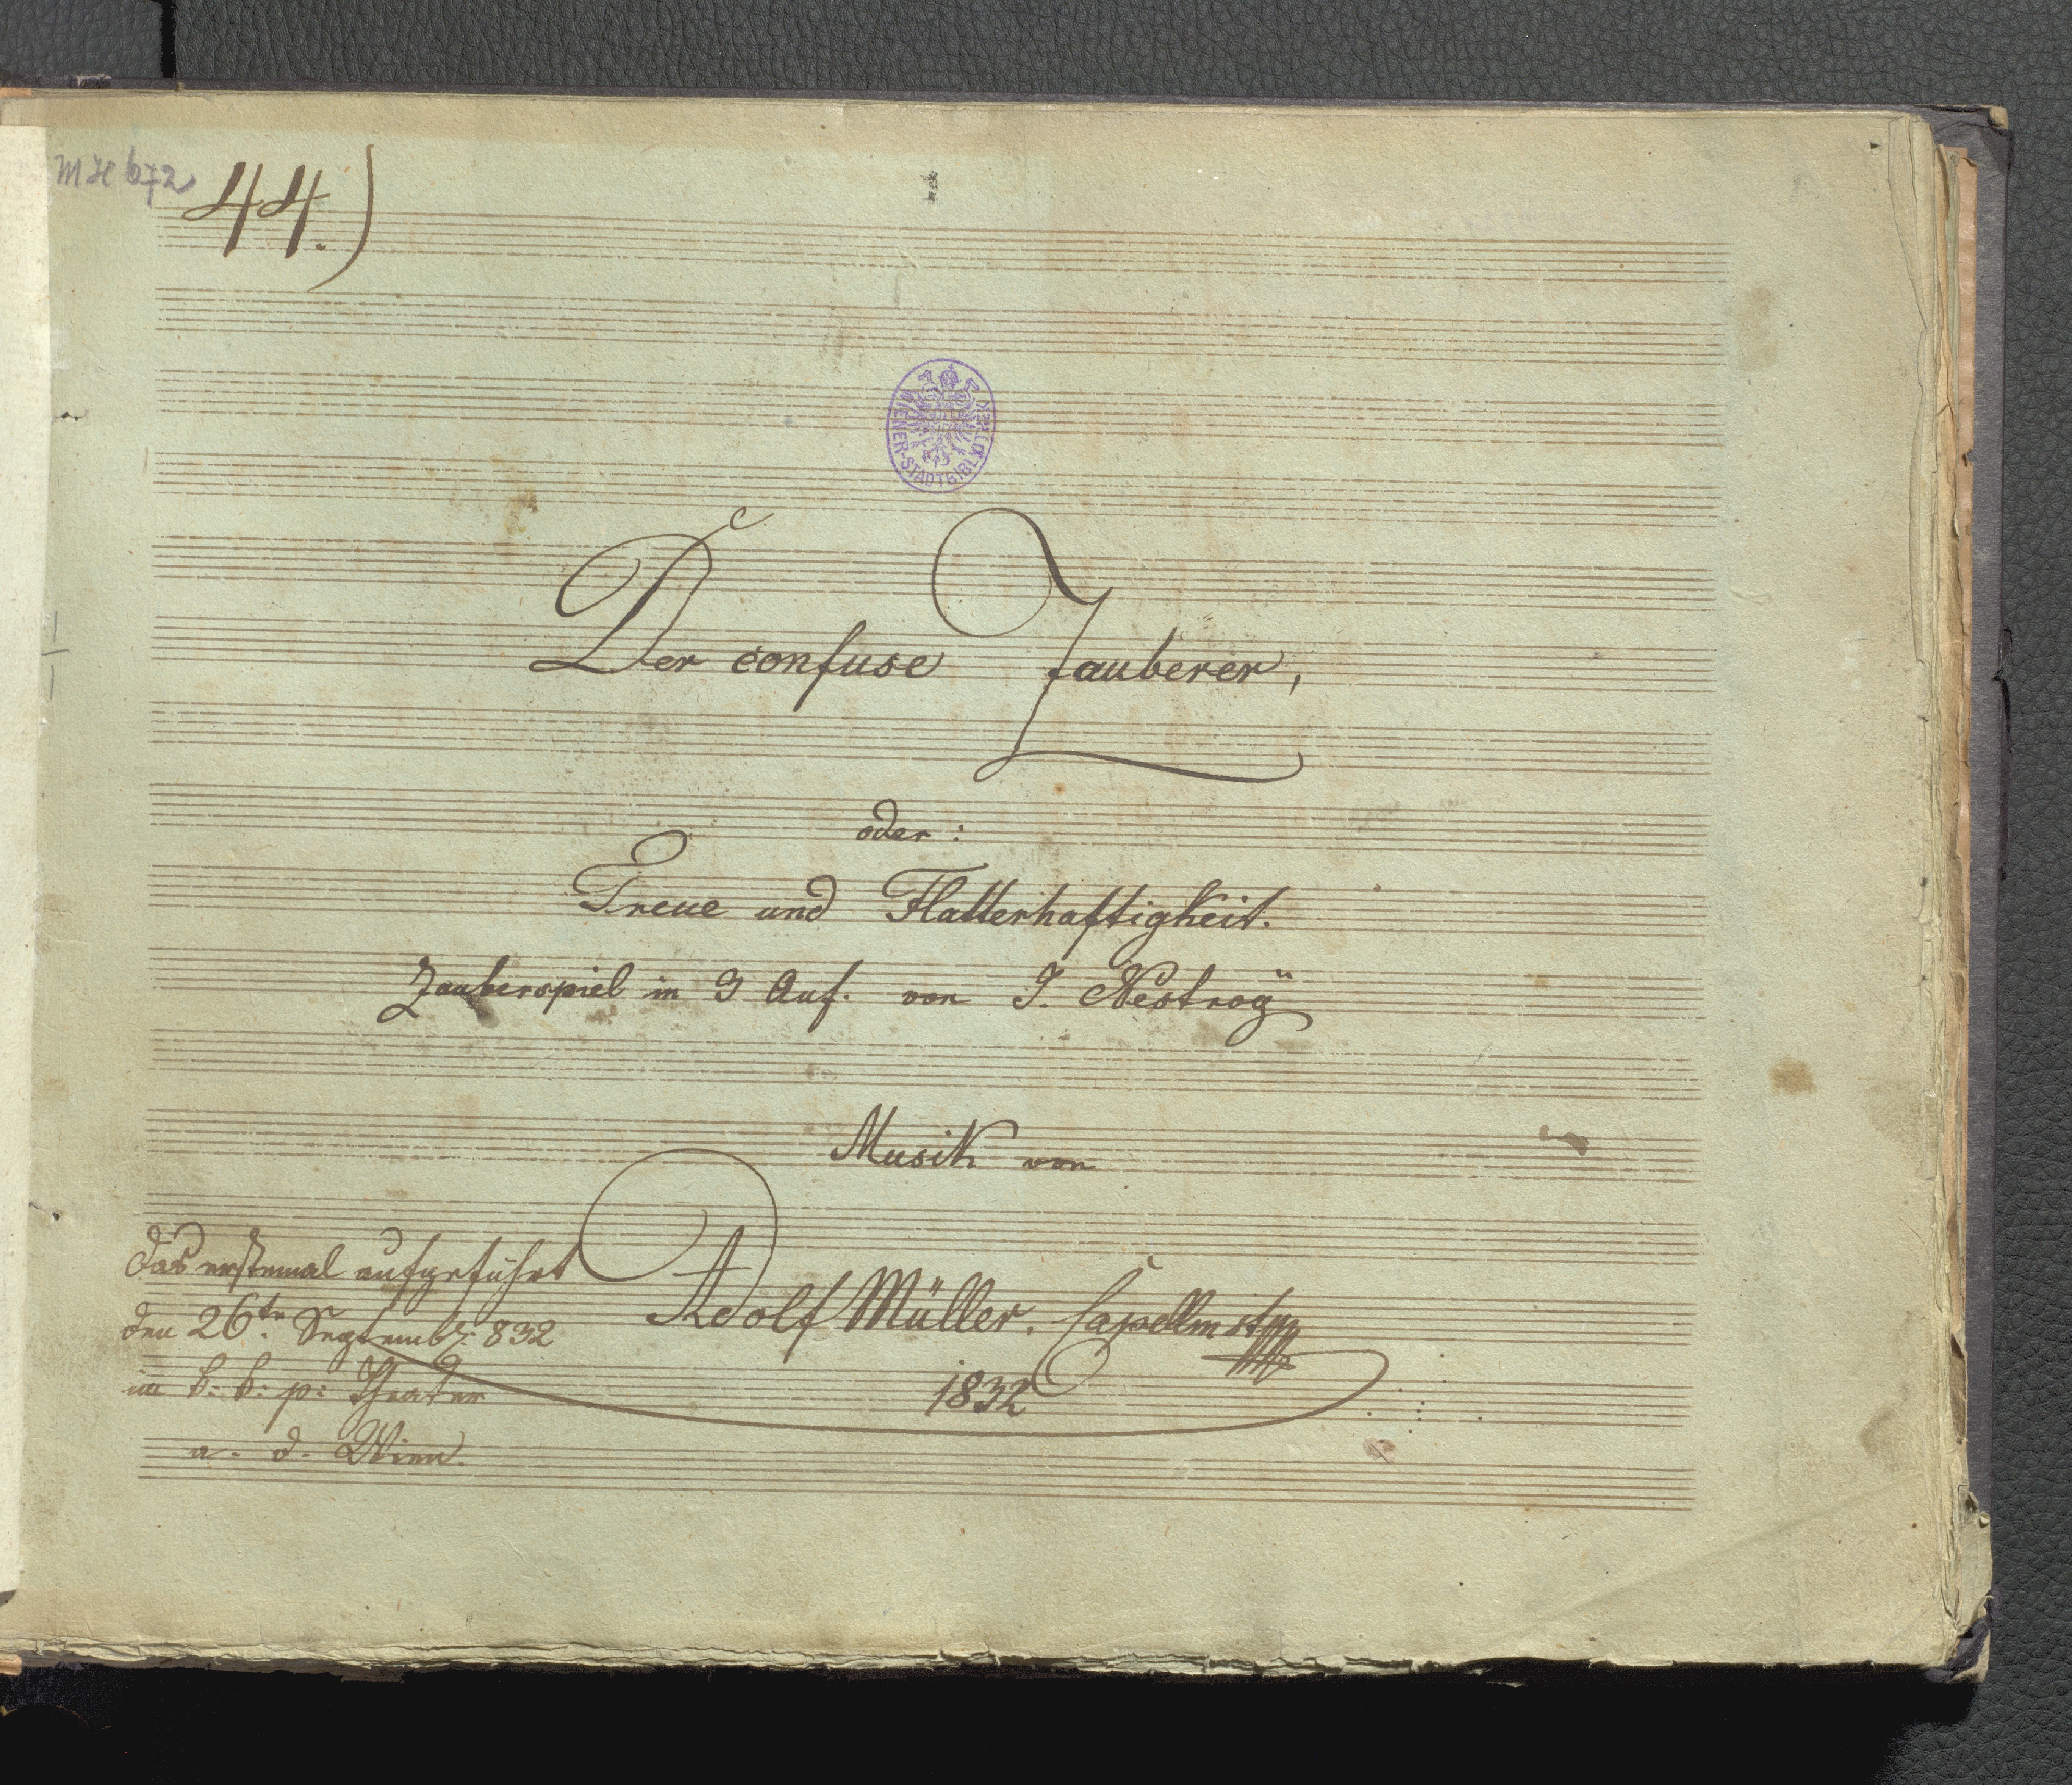 MH 672
44.)
WIENER-STADTBIBLIOTHEK
Der confuse Zauberer,
oder:
Treue und Flatterhaftigkeit.
Zauberspiel in 3 Auf. von J. Nestroÿ
Musik von
Adolf Müller. Capellmstr
1832
das erstemal aufgeführt
den 26te Septemb: 832
im k: k: p: Theater
a. d. Wien.